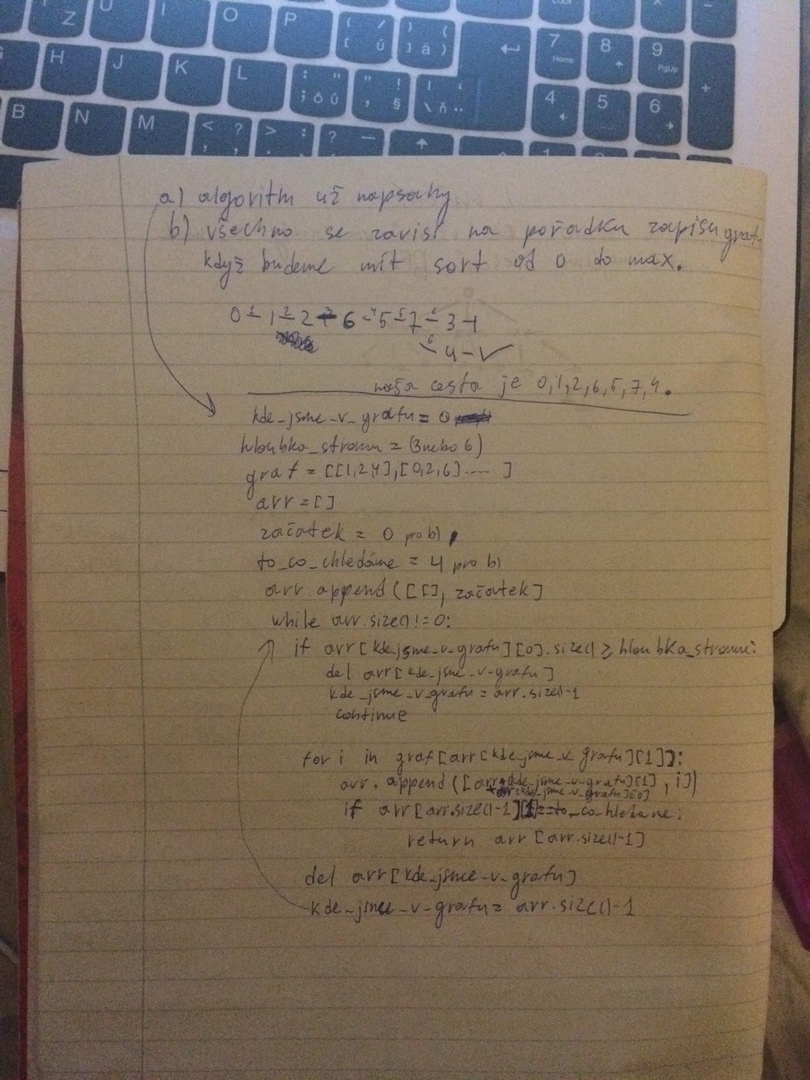 Z U I O P
H J K L
B N M
7 8 9
Home PgUp
4 5 6
a) algoritm už napsaný
b) všechno se zavisí na pořadku zapisu grafu
když budeme mít sort od 0 do max.
0 1 2 6 5 7 3 -1
4 - ✓
naša cesta je 0,1,2,6,5,7,4.
kde_jsme_v_grafu = 0
hloubka_stromu = (3 nebo 6)
graf = [[1,2,4],[0,2,6] .... ]
arr = []
začatek = 0 pro b)
to_co_chledáme = 4 pro b)
arr.append([[], začatek]
while arr.size() != 0:
if arr[kde_jsme_v_grafu][0].size() ≥ hloubka_stromu:
del arr[kde_jsme_v_grafu]
kde_jsme_v_grafu = arr.size()-1
continue
for i in graf[arr[kde_jsme_v_grafu][1]]:
arr.append([arr[kde_jsme_v_grafu][1], i]
arr[kde_jsme_v_grafu][0]
if arr[arr.size()-1][1]==to_co_hledame:
return arr[arr.size()-1]
del arr[kde_jsme_v_grafu]
kde_jsme_v_grafu = arr.size()-1